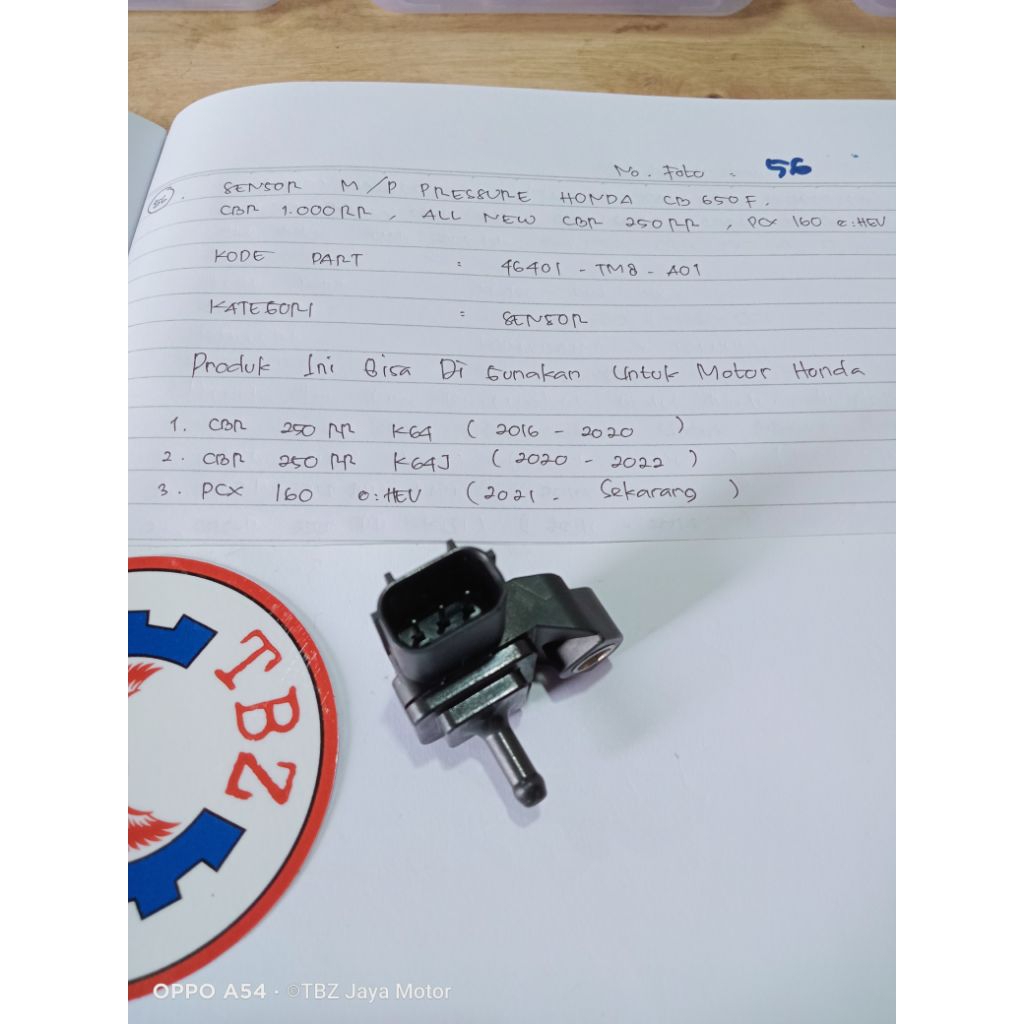 No. Foto : 56
56. SENSOR M/P PRESSURE HONDA CB 650F,
CBR 1.000 RR, ALL NEW CBR 250 RR, PCX 160 e:HEV
KODE PART : 46401 - TM8 - A01
KATEGORI : SENSOR
Produk Ini Bisa Di Gunakan Untuk Motor Honda
1. CBR 250 RR K64 ( 2016 - 2020 )
2. CBR 250 RR K64J ( 2020 - 2022 )
3. PCX 160 e:HEV ( 2021 - Sekarang )
TBZ
OPPO A54 · ©TBZ Jaya Motor